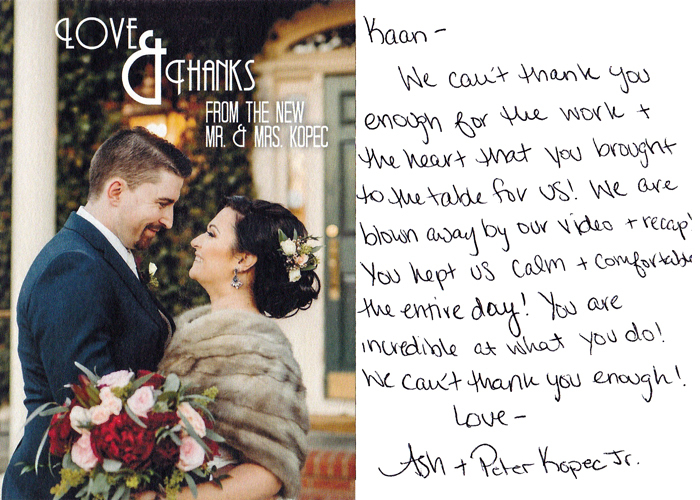 LOVE
&
THANKS
FROM THE NEW
MR. & MRS. KOPEC
Kaan-
We can't thank you
enough for the work +
the heart that you brought
to the table for us! We are
blown away by our video + recap!
You kept us calm + comfortable
the entire day! You are
incredible at what you do!
We can't thank you enough!
Love-
Ash + Peter Kopec Jr.